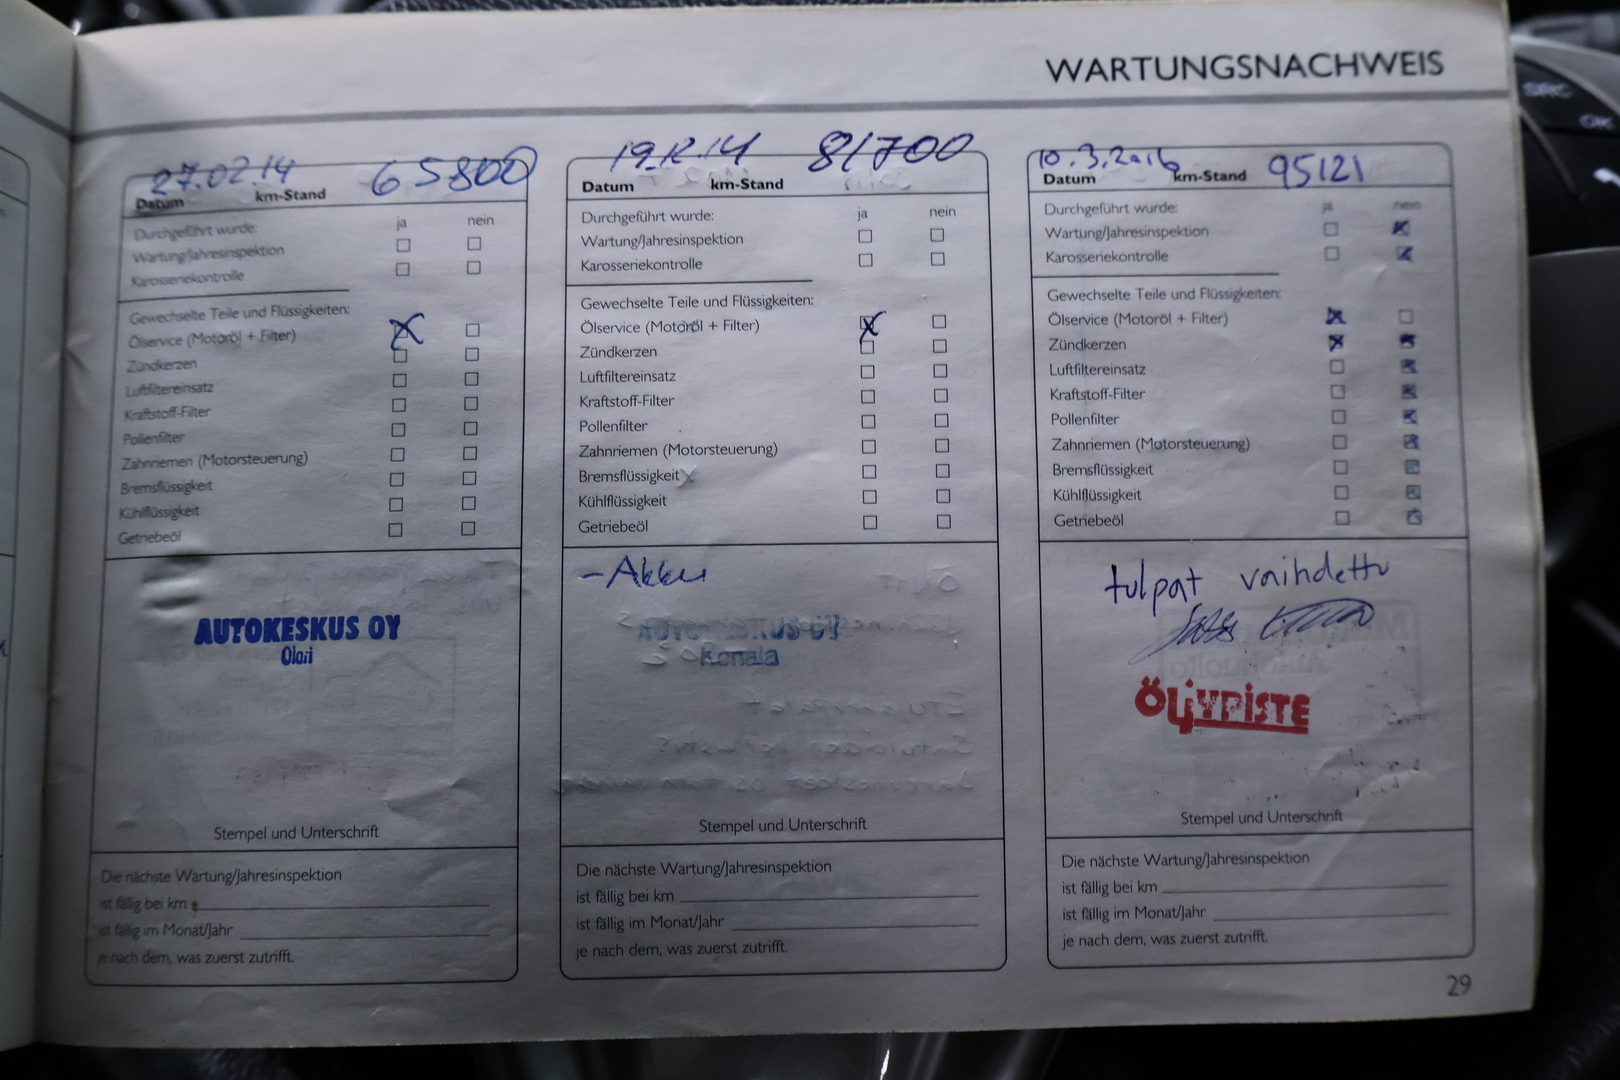 WARTUNGSNACHWEIS
27.02.14 65800
Datum km-Stand
Durchgeführt wurde: ja nein
Wartung/Jahresinspektion
Karosseriekontrolle
Gewechselte Teile und Flüssigkeiten:
Ölservice (Motoröl + Filter)
Zündkerzen
Luftfiltereinsatz
Kraftstoff-Filter
Pollenfilter
Zahnriemen (Motorsteuerung)
Bremsflüssigkeit
Kühlflüssigkeit
Getriebeöl
AUTOKESKUS OY
Olari
Stempel und Unterschrift
Die nächste Wartung/Jahresinspektion
ist fällig bei km
ist fällig im Monat/Jahr
je nach dem, was zuerst zutrifft.
19.12.14 81700
Datum km-Stand
Durchgeführt wurde: ja nein
Wartung/Jahresinspektion
Karosseriekontrolle
Gewechselte Teile und Flüssigkeiten:
Ölservice (Motoröl + Filter)
Zündkerzen
Luftfiltereinsatz
Kraftstoff-Filter
Pollenfilter
Zahnriemen (Motorsteuerung)
Bremsflüssigkeit
Kühlflüssigkeit
Getriebeöl
-Akku
AUTOKESKUS OY
Konala
Stempel und Unterschrift
Die nächste Wartung/Jahresinspektion
ist fällig bei km
ist fällig im Monat/Jahr
je nach dem, was zuerst zutrifft.
10.3.2016 95121
Datum km-Stand
Durchgeführt wurde: ja nein
Wartung/Jahresinspektion
Karosseriekontrolle
Gewechselte Teile und Flüssigkeiten:
Ölservice (Motoröl + Filter)
Zündkerzen
Luftfiltereinsatz
Kraftstoff-Filter
Pollenfilter
Zahnriemen (Motorsteuerung)
Bremsflüssigkeit
Kühlflüssigkeit
Getriebeöl
tulpat vaihdettu
ÖLJYPISTE
Stempel und Unterschrift
Die nächste Wartung/Jahresinspektion
ist fällig bei km
ist fällig im Monat/Jahr
je nach dem, was zuerst zutrifft.
29
SRC
OK